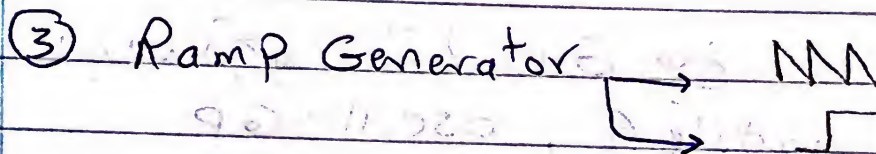 ③ Ramp Generator